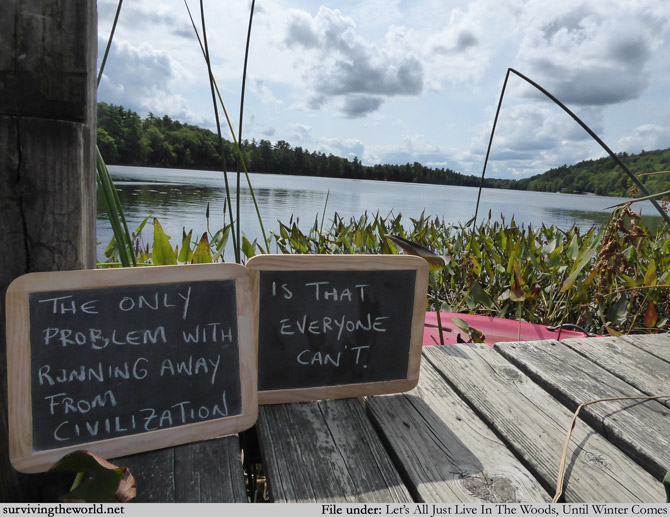 THE ONLY
PROBLEM WITH
RUNNING AWAY
FROM
CIVILIZATION
IS THAT
EVERYONE
CAN'T.
survivingtheworld.net
File under: Let's All Just Live In The Woods, Until Winter Comes